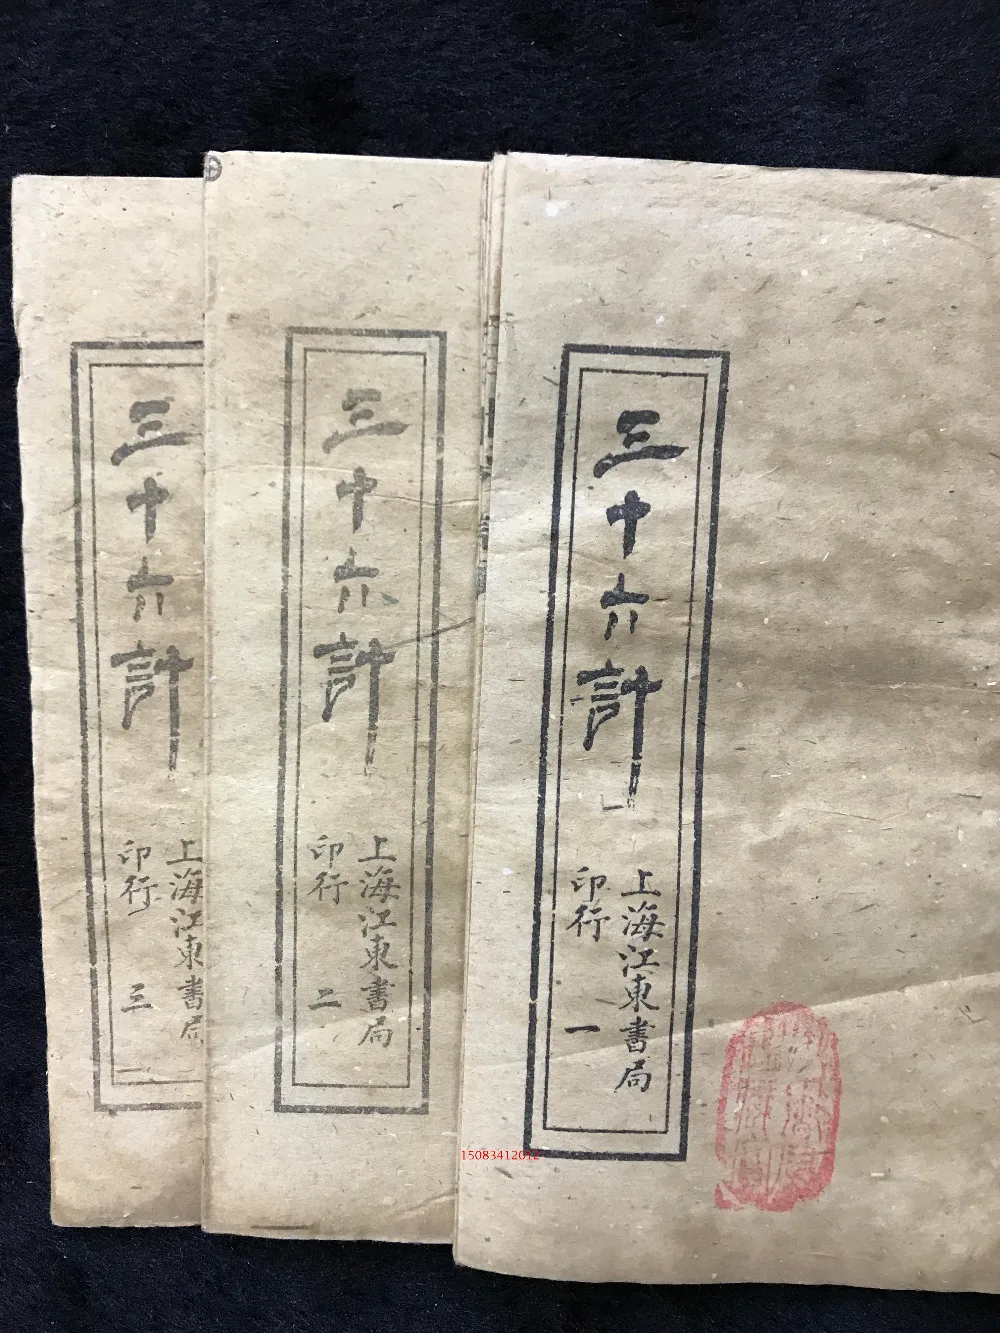 三十六計
上海江東書局
印行 一
三十六計
上海江東書局
印行 二
三十六計
上海江東書局
印行 三